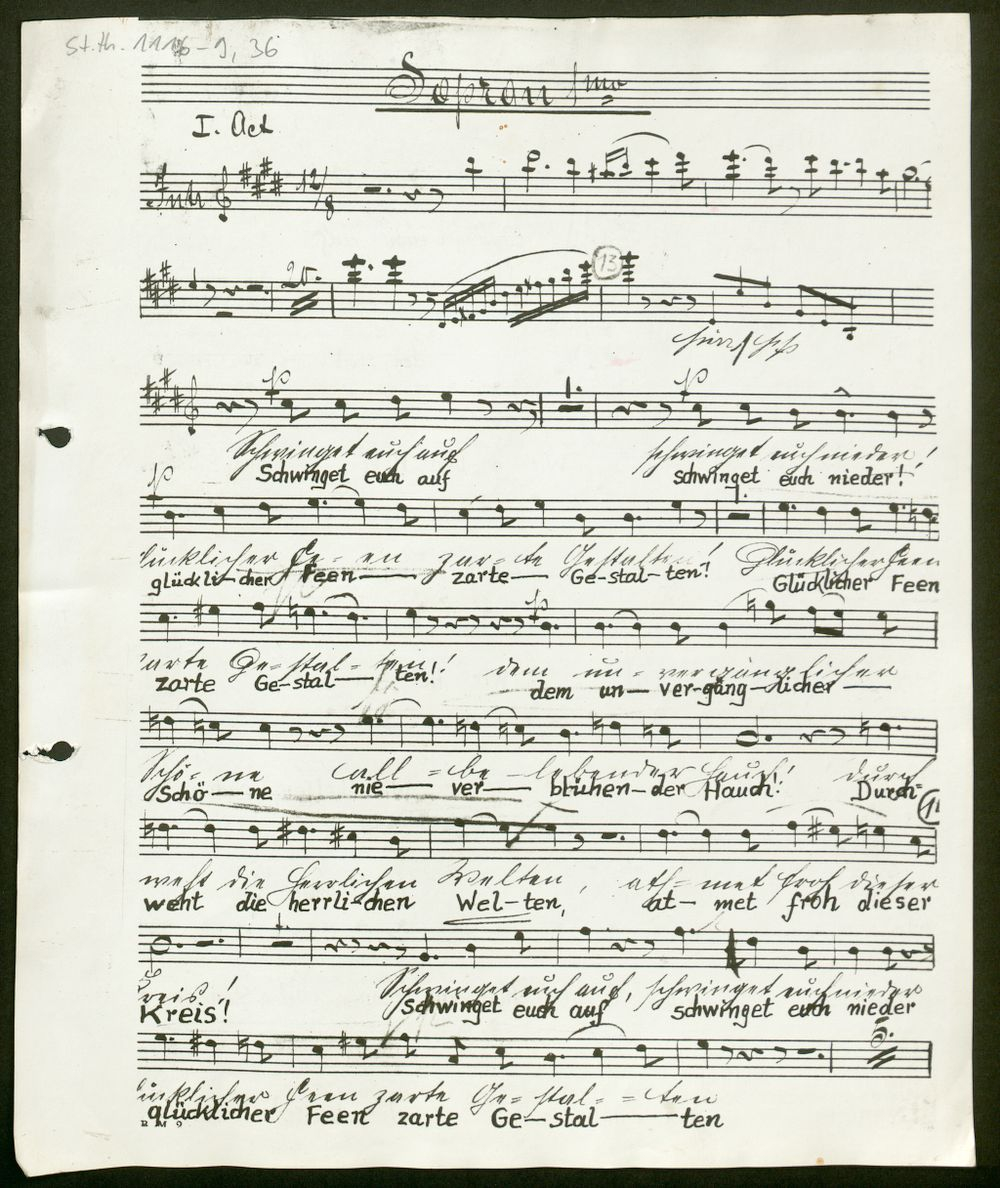 St.th. 1116-9, 36
Sopran Imo
I. Act
Intr 12/8
25.
13
Schwinget euch auf schwinget euch nieder!
Schwinget euch auf schwinget euch nieder!
glücklicher Fe-en zar-te Gestalten! Glücklicher Feen
glückli-cher Feen zarte Ge-stal-ten! Glücklicher Feen
zarte Ge-stal-ten! dem un-vergänglicher
zarte Ge-stal-ten! dem un-ver-gäng-licher
Schö-ne all-be-lebender Hauch! durch
Schö-ne nie-ver-blühen-der Hauch! Durch-
weht die herrlichen Welten, ath-met froh dieser
weht die herrli-chen Wel-ten, at-met froh dieser
Kreis! Schwinget euch auf, schwinget euch nieder
Kreis! Schwinget euch auf schwinget euch nieder
glücklicher Feen zarte Ge-stal-ten
glücklicher Feen zarte Ge-stal-ten